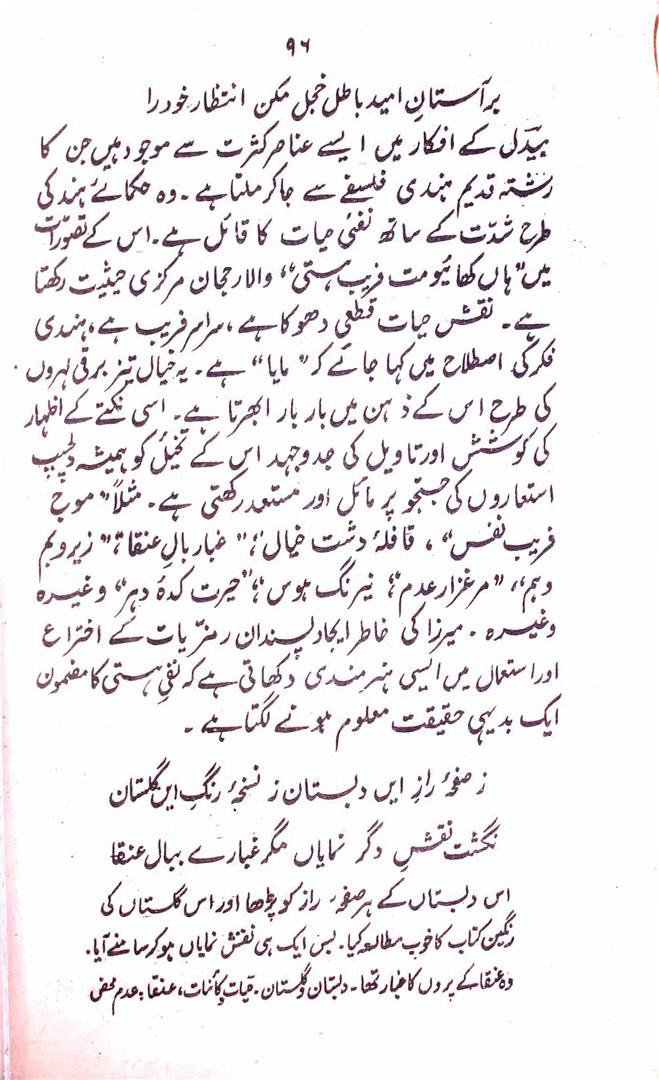 ۹۶
بر آستانِ امید باطل خجل مکن انتظار خود را
بیدل کے افکار میں ایسے عناصر کثرت سے موجود ہیں جن کا
رشتہ قدیم ہندی فلسفے سے جا کر ملتا ہے۔ وہ حکمائے ہند کی
طرح شدّت کے ساتھ نفئ حیات کا قائل ہے۔ اس کے تصوّرات
میں "ہاں کھائیو مت فریبِ ہستی" والا رجحان مرکزی حیثیت رکھتا
ہے۔ نقشِ حیات قطعی دھوکا ہے، سراسر فریب ہے، ہندی
فکر کی اصطلاح میں کہا جائے کہ "مایا" ہے۔ یہ خیال تیز برقی لہروں
کی طرح اس کے ذہن میں بار بار ابھرتا ہے۔ اسی نکتے کے اظہار
کی کوشش اور تاویل کی جدوجہد اس کے تخیّل کو ہمیشہ دلچسپ
استعاروں کی جستجو پر مائل اور مستعد رکھتی ہے۔ مثلاً "موجِ
فریبِ نفس"، قافلۂ دشتِ خیال"، "غبارِ بالِ عنقا"، "زیر و بم
وہم"، "مرغزارِ عدم"، نیرنگ ہوس"، "حیرت کدۂ دہر" وغیرہ
وغیرہ۔ میرزا کی خاطر ایجاد پسند ان رمزیات کے اختراع
اور استعمال میں ایسی ہنرمندی دکھاتی ہے کہ نفیِ ہستی کا مضمون
ایک بدیہی حقیقت معلوم ہونے لگتا ہے۔
ز صفحۂ رازِ ایں دبستاں ز نسخۂ رنگِ ایں گلستاں
نگشت نقشِ دگر نمایاں مگر غبارے ببالِ عنقا
اس دبستاں کے ہر صفحۂ راز کو پڑھا اور اس گلستاں کی
رنگین کتاب کا خوب مطالعہ کیا۔ بس ایک ہی نقش نمایاں ہو کر سامنے آیا۔
وہ عنقا کے پروں کا غبار تھا۔ دبستان و گلستان۔ حیات و کائنات، عنقا: عدم محض